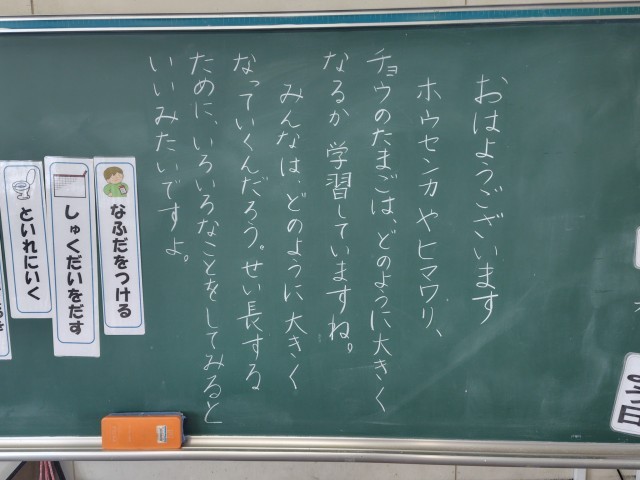 おはようございます
ホウセンカやヒマワリ、
チョウのたまごは、どのように大きく
なるか学習していますね。
みんなは、どのように大きく
なっていくんだろう。せい長する
ために、いろいろなことをしてみると
いいみたいですよ。
なふだをつける
しゅくだいをだす
といれにいく